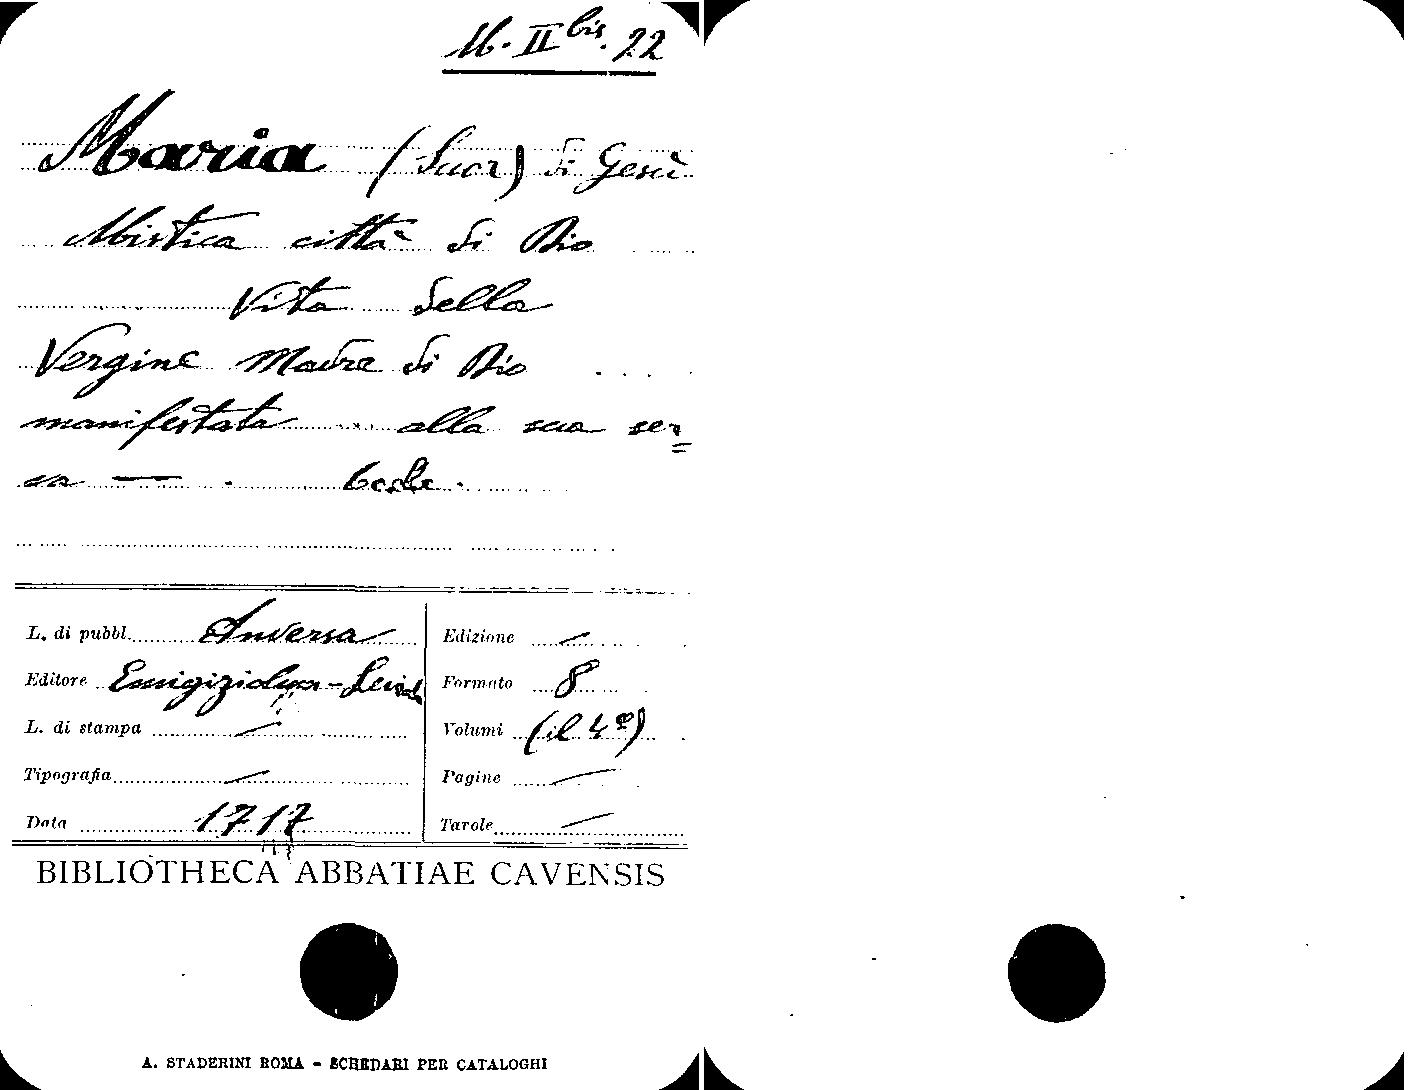 M. II bis. 22
Maria (Suor) di Gesù
Mistica città di Dio
Vita della
Vergine Madre di Dio
manifestata alla sua ser=
va — .
L. di pubbl. Anversa
Edizione —
Editore
Formato 8
L. di stampa —
Volumi (il 4º)
Tipografia —
Pagine —
Data 1717
Tavole —
BIBLIOTHECA ABBATIAE CAVENSIS
A. STADERINI ROMA - SCHEDARI PER CATALOGHI